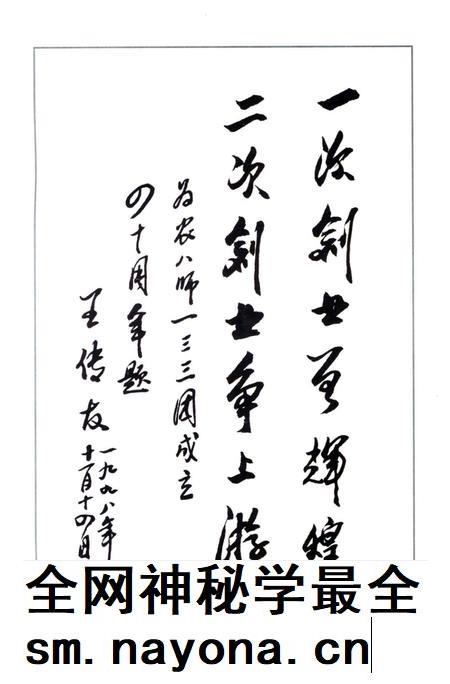 一次创业更辉煌
二次创业争上游
为农八师一三三团成立
四十周年题
王传友
一九九八年
十一月十四日
全网神秘学最全
sm.nayona.cn